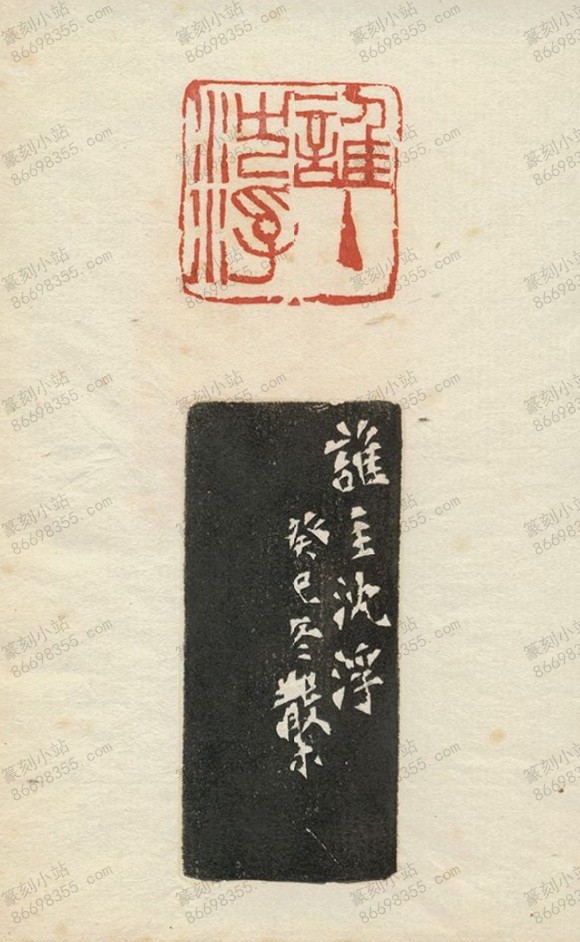 誰主
沈浮
誰主沈浮
癸巳冬散木
篆刻小站
86698355.com